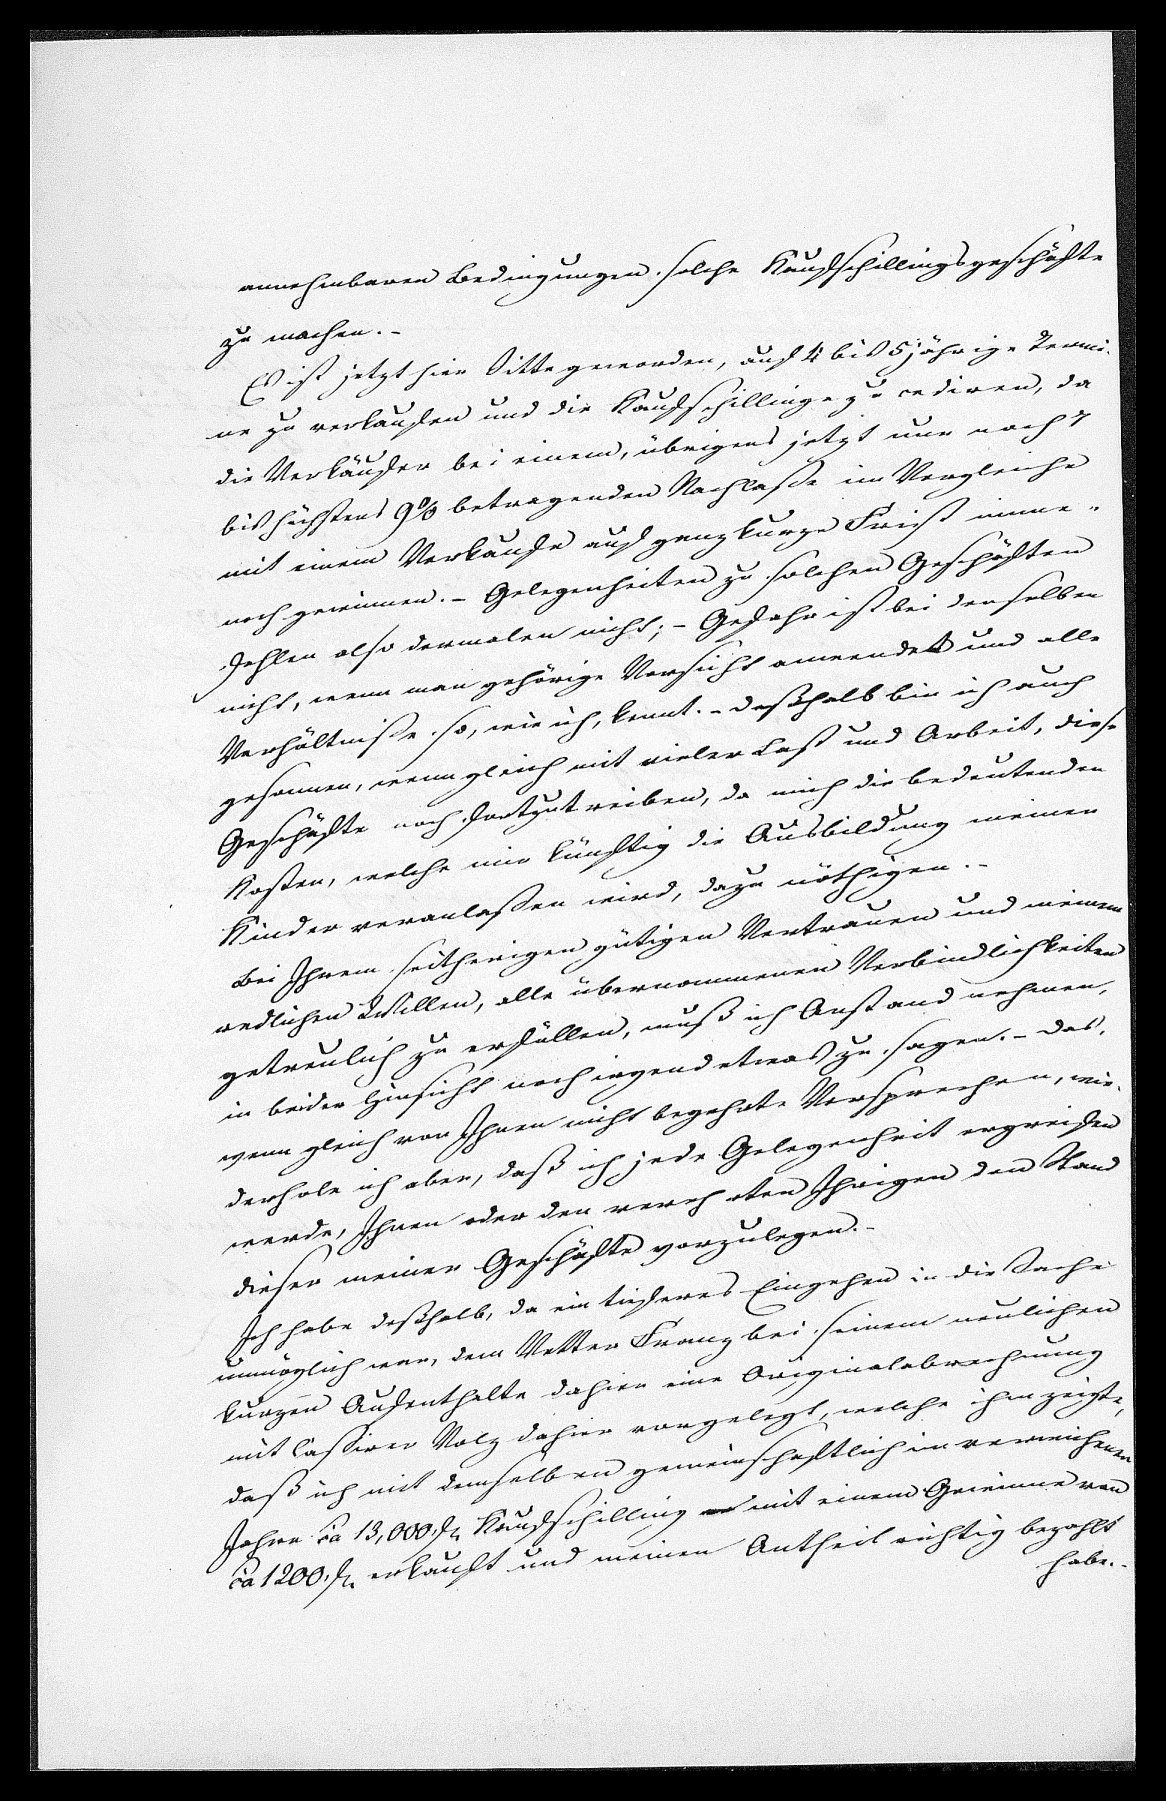 annehmbaren Bedingungen solche Kaufschillingsgeschäfte
zu machen. -
Es ist jetzt hier Sitte geworden, auf 4 bis 5jährige Termi-
ne zu verkaufen und die Kaufschillinge zu cediren, da
die Verkäufer bei einem, übrigens jetzt nur noch 7
bis höchstens 9% betragenden Nachlasse im Vergleiche
mit einem Verkaufe auf ganz kurze Frist immer
noch gewinnen. - Gelegenheiten zu solchen Geschäften
fehlen also dermalen nicht; - Gefahr ist bei denselben
nicht, wenn man gehörige Vorsicht anwendet und alle
Verhältnisse so, wie ich, kennt. - Deßhalb bin ich auch
gesonnen, wenn gleich mit vieler Last und Arbeit, diese
Geschäfte noch fortzutreiben, da mich die bedeutenden
Kosten, welche mir künftig die Ausbildung meiner
Kinder veranlassen wird, dazu nöthigen. -
Bei Ihrem seitherigen gütigen Vertrauen und meinem
redlichen Willen, alle übernommenen Verbindlichkeiten
getreulich zu erfüllen, muß ich Anstand nehmen,
in beider Hinsicht noch irgend etwas zu sagen. - Das,
wenn gleich von Ihnen nicht begehrte Versprechen, wie-
derhole ich aber, daß ich jede Gelegenheit ergreifen
werde, Ihnen oder den verehrten Ihrigen den Stand
dieser meiner Geschäfte vorzulegen. -
Ich habe deßhalb, da ein tieferes Eingehen in die Sache
unmöglich war, dem Vetter Franz bei seinem neulichen
kurzen Aufenthalte dahier eine Originalabrechnung
mit Cassirer Volz dahier vorgelegt, welche ihm zeigte,
daß ich mit demselben gemeinschaftlich im verwichenen
Jahre ca 13,000. fl. Kaufschilling mit einem Gewinne von
ca 1200. fl. erkauft und meinen Antheil richtig bezahlt
habe. -